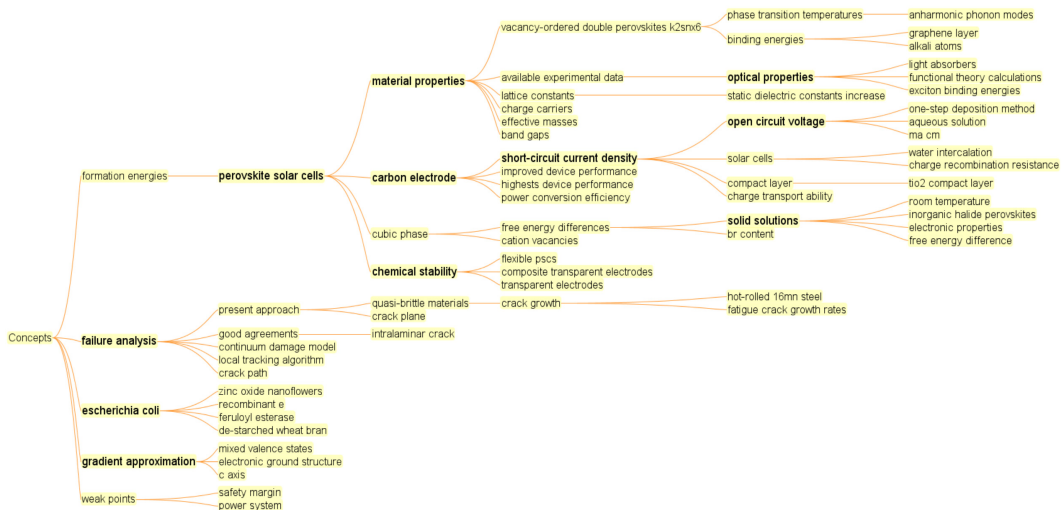 Concepts
formation energies
perovskite solar cells
material properties
vacancy-ordered double perovskites k2snx6
phase transition temperatures
anharmonic phonon modes
binding energies
graphene layer
alkali atoms
available experimental data
optical properties
light absorbers
functional theory calculations
exciton binding energies
lattice constants
static dielectric constants increase
charge carriers
effective masses
band gaps
carbon electrode
short-circuit current density
open circuit voltage
one-step deposition method
aqueous solution
ma cm
solar cells
water intercalation
charge recombination resistance
compact layer
tio2 compact layer
charge transport ability
improved device performance
highests device performance
power conversion efficiency
cubic phase
free energy differences
solid solutions
room temperature
inorganic halide perovskites
electronic properties
free energy difference
br content
cation vacancies
chemical stability
flexible pscs
composite transparent electrodes
transparent electrodes
failure analysis
present approach
quasi-brittle materials
crack growth
hot-rolled 16mn steel
fatigue crack growth rates
crack plane
good agreements
intralaminar crack
continuum damage model
local tracking algorithm
crack path
escherichia coli
zinc oxide nanoflowers
recombinant e
feruloyl esterase
de-starched wheat bran
gradient approximation
mixed valence states
electronic ground structure
c axis
weak points
safety margin
power system